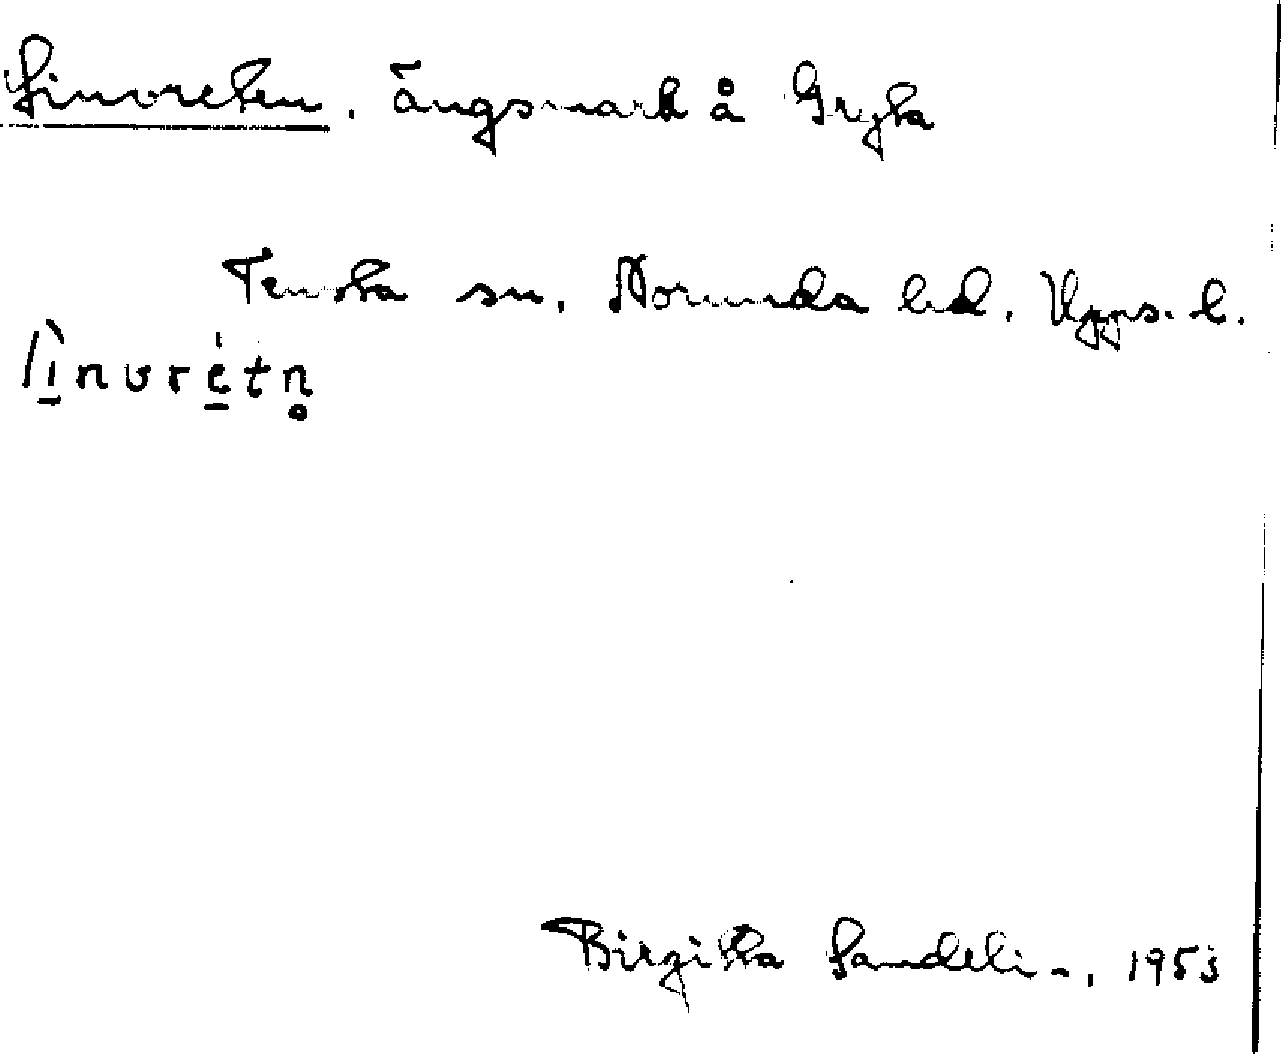 Linvreten. Ängsmark å Gryta
Tensta sn. Norunda hd. Upps. l.
lìnvrétn̥
Birgitta Sandelin, 1953